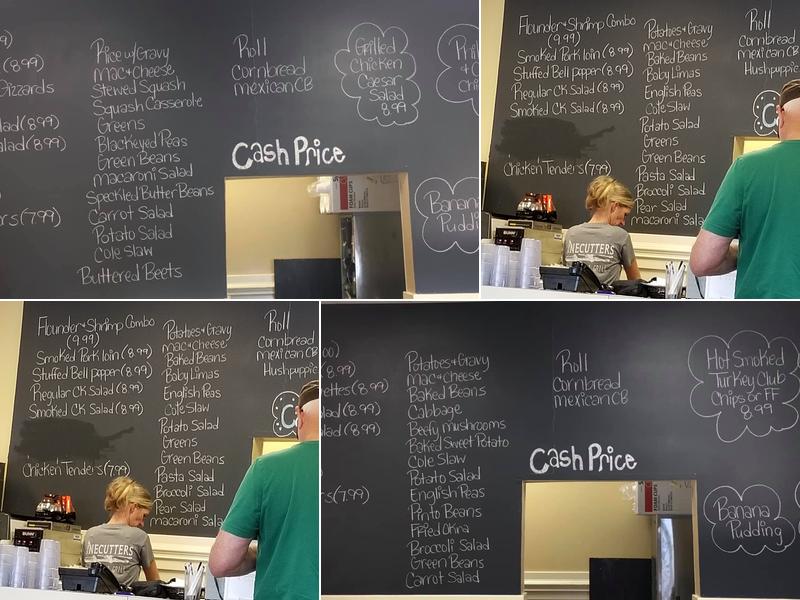 (8.99)
Gizzards
(8.99)
(8.99)
(7.99)
Rice w/Gravy
mac & cheese
Stewed Squash
Squash Casserole
Greens
Blackeyed Peas
Green Beans
macaroni Salad
Speckled Butter Beans
Carrot Salad
Potato Salad
Cole Slaw
Buttered Beets
Roll
Cornbread
mexican CB
Grilled
Chicken
Caesar
Salad
8.99
Cash Price
Banan
Puddi
Flounder & Shrimp Combo
(9.99)
Smoked Pork loin (8.99)
Stuffed Bell pepper (8.99)
Regular CK Salad (8.99)
Smoked CK Salad (8.99)
Chicken Tenders (7.99)
Potatoes & Gravy
mac & cheese
Baked Beans
Baby Limas
English Peas
Cole Slaw
Potato Salad
Greens
Green Beans
Pasta Salad
Broccoli Salad
Pear Salad
macaroni Sala
Roll
Cornbread
mexican CB
Hushpuppie
BUNN
NECUTTERS
Flounder & Shrimp Combo
(9.99)
Smoked Pork loin (8.99)
Stuffed Bell pepper (8.99)
Regular CK Salad (8.99)
Smoked CK Salad (8.99)
Chicken Tenders (7.99)
Potatoes & Gravy
mac & cheese
Baked Beans
Baby Limas
English Peas
Cole Slaw
Potato Salad
Greens
Green Beans
Pasta Salad
Broccoli Salad
Pear Salad
macaroni Sala
Roll
Cornbread
mexican CB
Hushpuppie
BUNN
NECUTTERS
(8.99)
(8.99)
(8.99)
(7.99)
Potatoes & Gravy
mac & cheese
Baked Beans
Cabbage
Beefy mushrooms
Baked Sweet Potato
Cole Slaw
Potato Salad
English Peas
Pinto Beans
Fried Okra
Broccoli Salad
Green Beans
Carrot Salad
Roll
Cornbread
mexican CB
Hot Smoked
Turkey Club
Chips or FF
8.99
Cash Price
Banana
Pudding